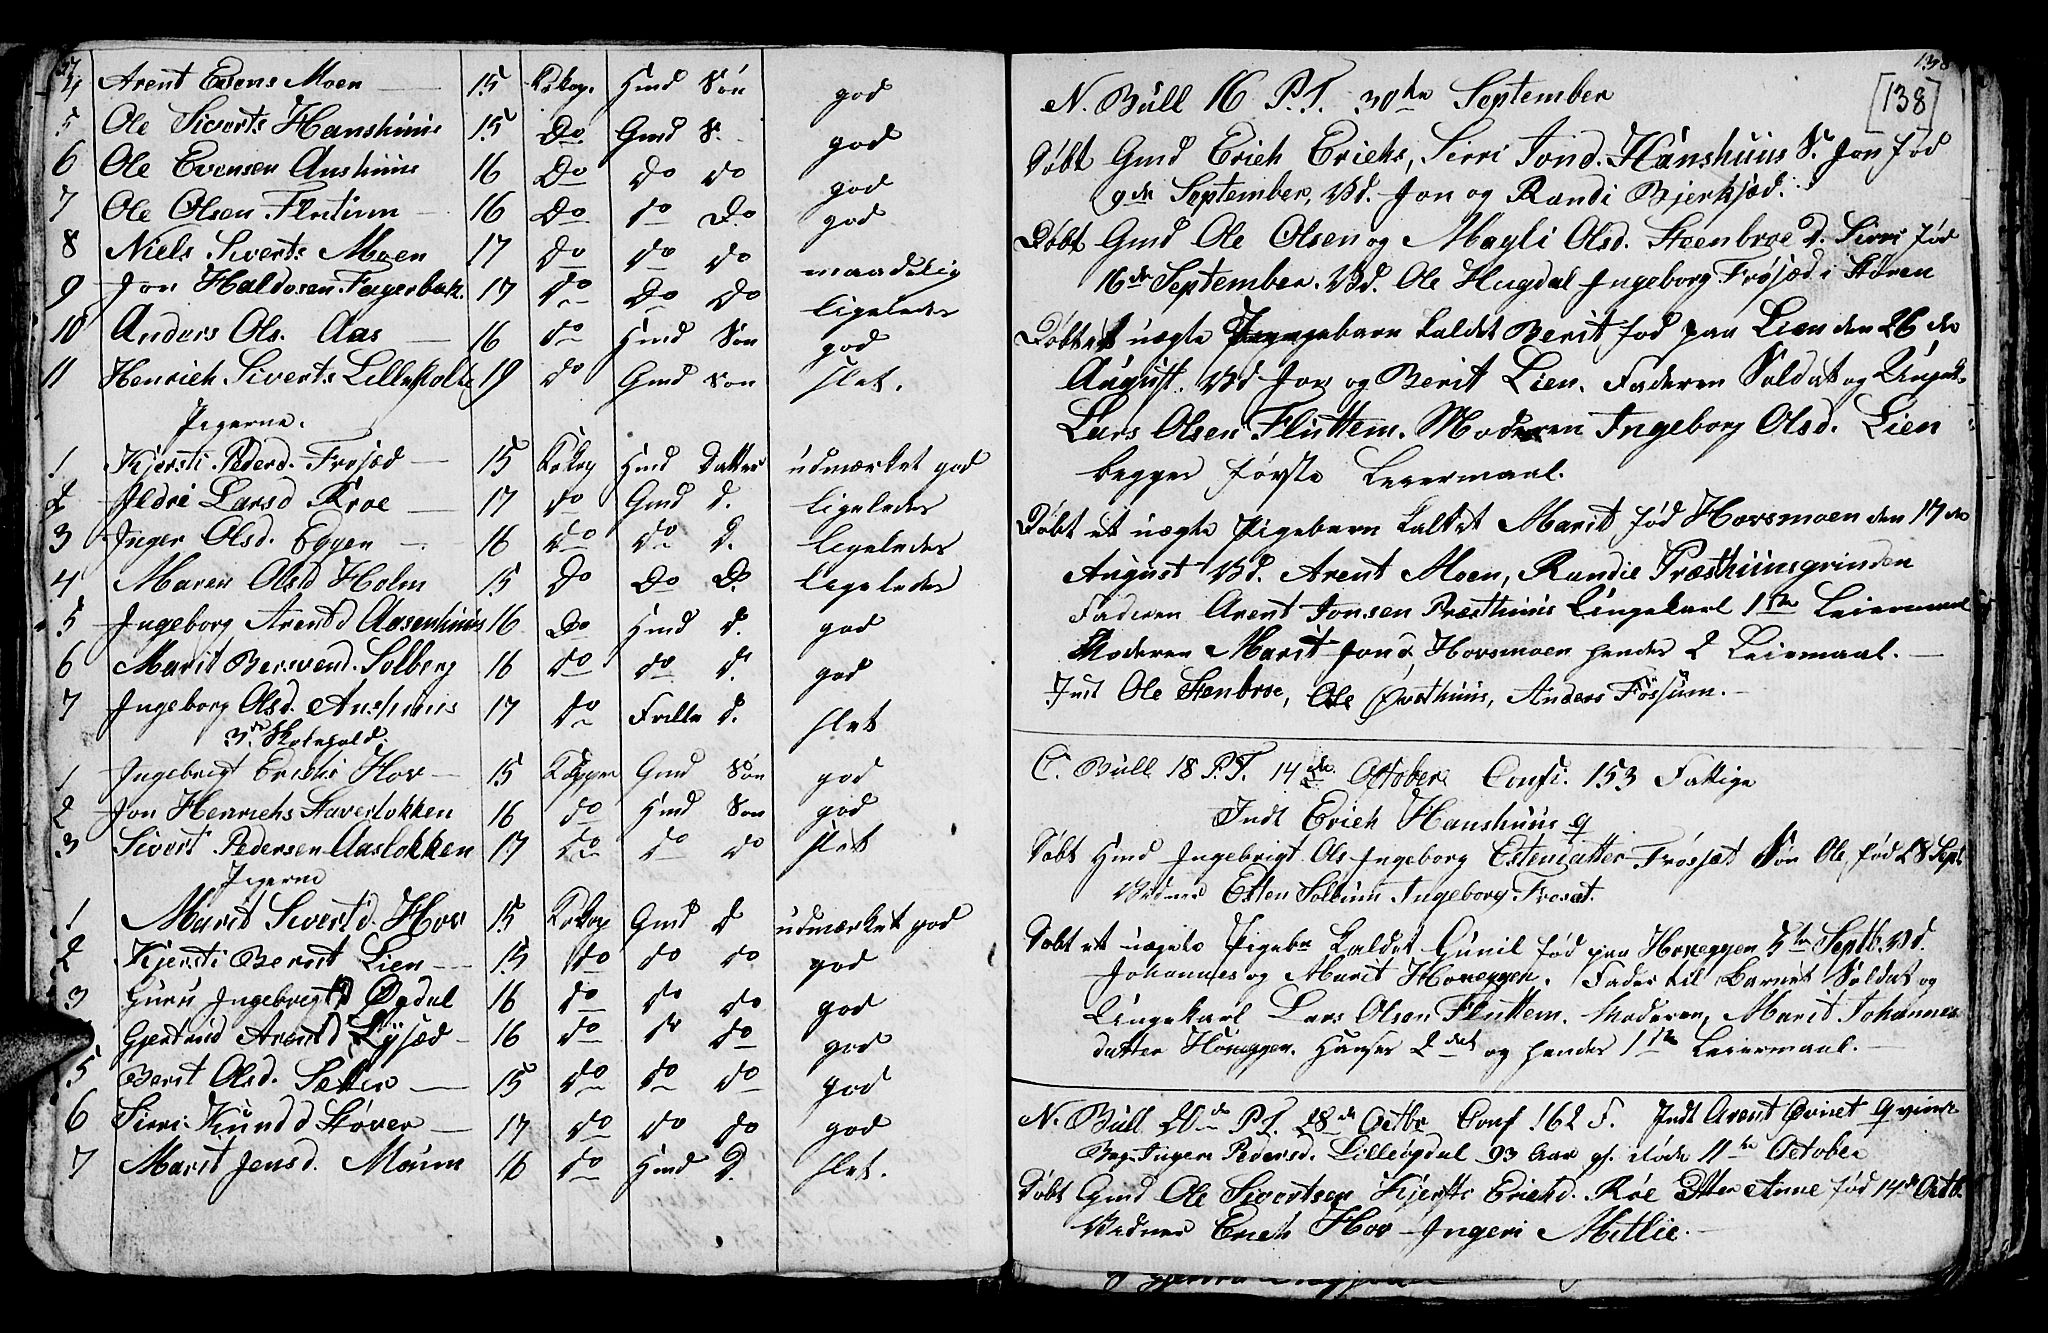 4 Arent Evens Moen 15 Kokop. Hmd Sön god
5 Ole Siverts Hanshuus 15 Do Gmd S. god
6 Ole Evensen Anshuus 16 Do do do god
7 Ole Olsen Flutum 16 Do do Do god
8 Niels Siverts Moen 17 do do do maadelig
9 Jon Haldosen Fagerbak. 17 do Do Do ligeledes
10 Anders Ols. Aas 16 do Hmd Son god
11 Henrich Siverts Lillekolte 19 do Gmd son slet.
Pigerne.
1 Kjersti Pederd. Frosæd 15 Kokop Hmd Datter udmærket god
2 Ildri Larsd Kroe 17 do Gmd d. ligeledes
3 Inger Olsd. Eggen 16 do do d. ligeledes
4 Maren Olsd Holm 15 Do Do Do. ligeledes
5 Ingeborg Arentd Aasenhuus 16 Do Hmd d. god
6 Marit Bersvend. Solberg 16 do do d. god
7 Ingeborg Olsd. Anshuus 17 do Frille d. slet
3de Skolehold.
1 Ingebrigt Erichs Hov 15 Kopper Gmd Søn god
2 Jon Henrichs Haverløkken 16 do Hmd Søn god
3 Sivert Pedersen Aasløkken 17 do do do slet
Pigerne
1 Marit Sivertd. Hov 15 Kokop Gmd D udmærket god
2 Kjersti Berset Lien 15 do do do god
3 Guru Ingebrigtd Øgdal 16 do do do god
Gjertrud Arentd Lysæd 16 do do do god
5 Berit Olsd. Sætter 15 do do do god
6 Sirri Knudd Støren 17 do do do god
7 Marit Jensd. Moum 16 do Hmd D. slet.
138
[138]
N. Bull 16 P.T. 30te September
Döbt Gmd Erich Erichs, Sirri Jond. Hanshuus S. Jon fød
9de September, Vid. Jon og Randi Bjerksæd.
Døbt Gmd Ole Olsen og Mayli Olsd. Steenbroe D. Sirri fød
16de September. Vid. Ole Hugdal Ingeborg Frøsæd i Støren
Døbt et uægte Pigebarn kaldet Berit fød paa Lien den 26de
August. Vid Jon og Berit Lien. Faderen Soldat og Ungk.
Lars Olsen Fluttem. Moderen Ingeborg Olsd. Lien
begges første Leiermaal.
Døbt et uægte Pigebarn kaldet Marit fød Horsmoen den 17de
August Vid. Arent Moen, Randie Præsthuusgrinden
Faderen Arent Jonsen Præsthuus Ungekarl 1ste Leiermaal
Moderen Marit Jonsd. Horsmoen hendes 2 Leiermaal.
Indt Ole Stenbroe, Ole Præsthuus, Anders Fossum.
C. Bull 18 P.T. 14de October Conf. 153 Fattige
Indt Erich Hanshuus q
Døbt Hmd Ingebrigt Ols Ingeborg Estendatter Frosæt Søn Ole, fød 28 Sept.
Vidner Esten Solbuum Ingeborg Frosæt.
Døbt et uægte Pigebn kaldet Gunil fød paa Honeggen 5te Septb. Vid.
Johannes og Marit Honeggen. Fader til Barnet Soldat og
Ungekarl Lars Olsen Fluttem. Moderen Marit Johannes
datter Honeggen. Hanses 2det og hendes 1ste Leiermaal.
N. Bull 20de P.T. 28de Octbr Conf 162 F. Indt Arent qvinde
Beg. Inger Pedersd. Lilleøgdal 93 Aar gl. døde 11te October
Døbt Gmd Ole Sivertsen Kjersti Erichd. Røe Dtter Anne fød 14de Octb.
Vidner Erich Hov Ingeri Mitlie.